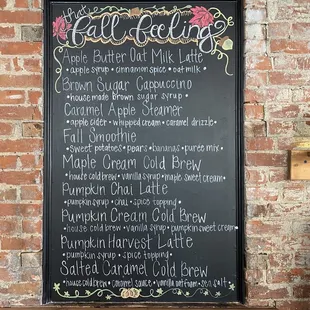 that
fall feeling
Apple Butter Oat Milk Latte
• apple syrup • cinnamon spice • oat milk •
Brown Sugar Cappuccino
• house made brown sugar syrup •
Caramel Apple Steamer
• apple cider • whipped cream • caramel drizzle •
Fall Smoothie
• sweet potatoes • pears • bananas • puree mix •
Maple Cream Cold Brew
• house cold brew • vanilla syrup • maple sweet cream •
Pumpkin Chai Latte
pumpkin syrup • chai • spice topping •
Pumpkin Cream Cold Brew
• house cold brew • vanilla syrup • pumpkin sweet cream •
Pumpkin Harvest Latte
• pumpkin syrup • spice topping •
Salted Caramel Cold Brew
• house cold brew • caramel sauce • vanilla oat foam • sea salt •